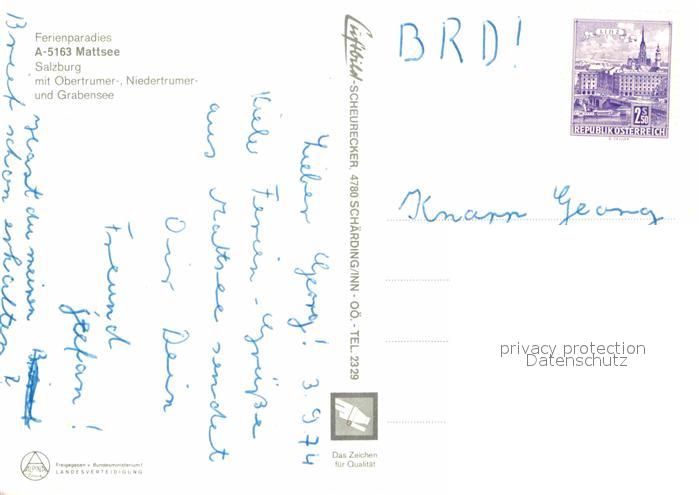 Ferienparadies
A-5163 Mattsee
Salzburg
mit Obertrumer-, Niedertrumer-
und Grabensee
Lieber Georg! 3.9.74
Viele Ferien-Grüße
aus Mattsee sendet
Dir Dein
Freund
Stefan!
Hast du meinen
Brief schon erhalten?
Luftbild SCHEURECKER, 4780 SCHÄRDING/INN - OÖ. - TEL. 2329
BRD!
LINZ
2S50
REPUBLIK ÖSTERREICH
Knapp Georg
privacy protection
Datenschutz
Das Zeichen
für Qualität
ALPINA
Freigegeben v. Bundesministerium f.
LANDESVERTEIDIGUNG